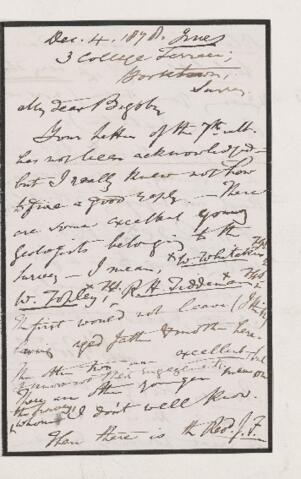 Dec. 4. 1878.
3 College Terrace,
Surrey
My dear Bigsby
Your letter of the 7th ult.
has not been acknowledged
but I really knew not how
to give a good reply — There
are some excellent young
geologists belonging to the
Survey — I mean, W. Whitaker
W. Topley, R. H. Tiddeman
The first would not leave (I think)
having aged father & mother here.
The other two are excellent but
I know not their engagements
There are other younger men on
the Survey
(whom) I don't well know.
Then there is the Revd. J. F.